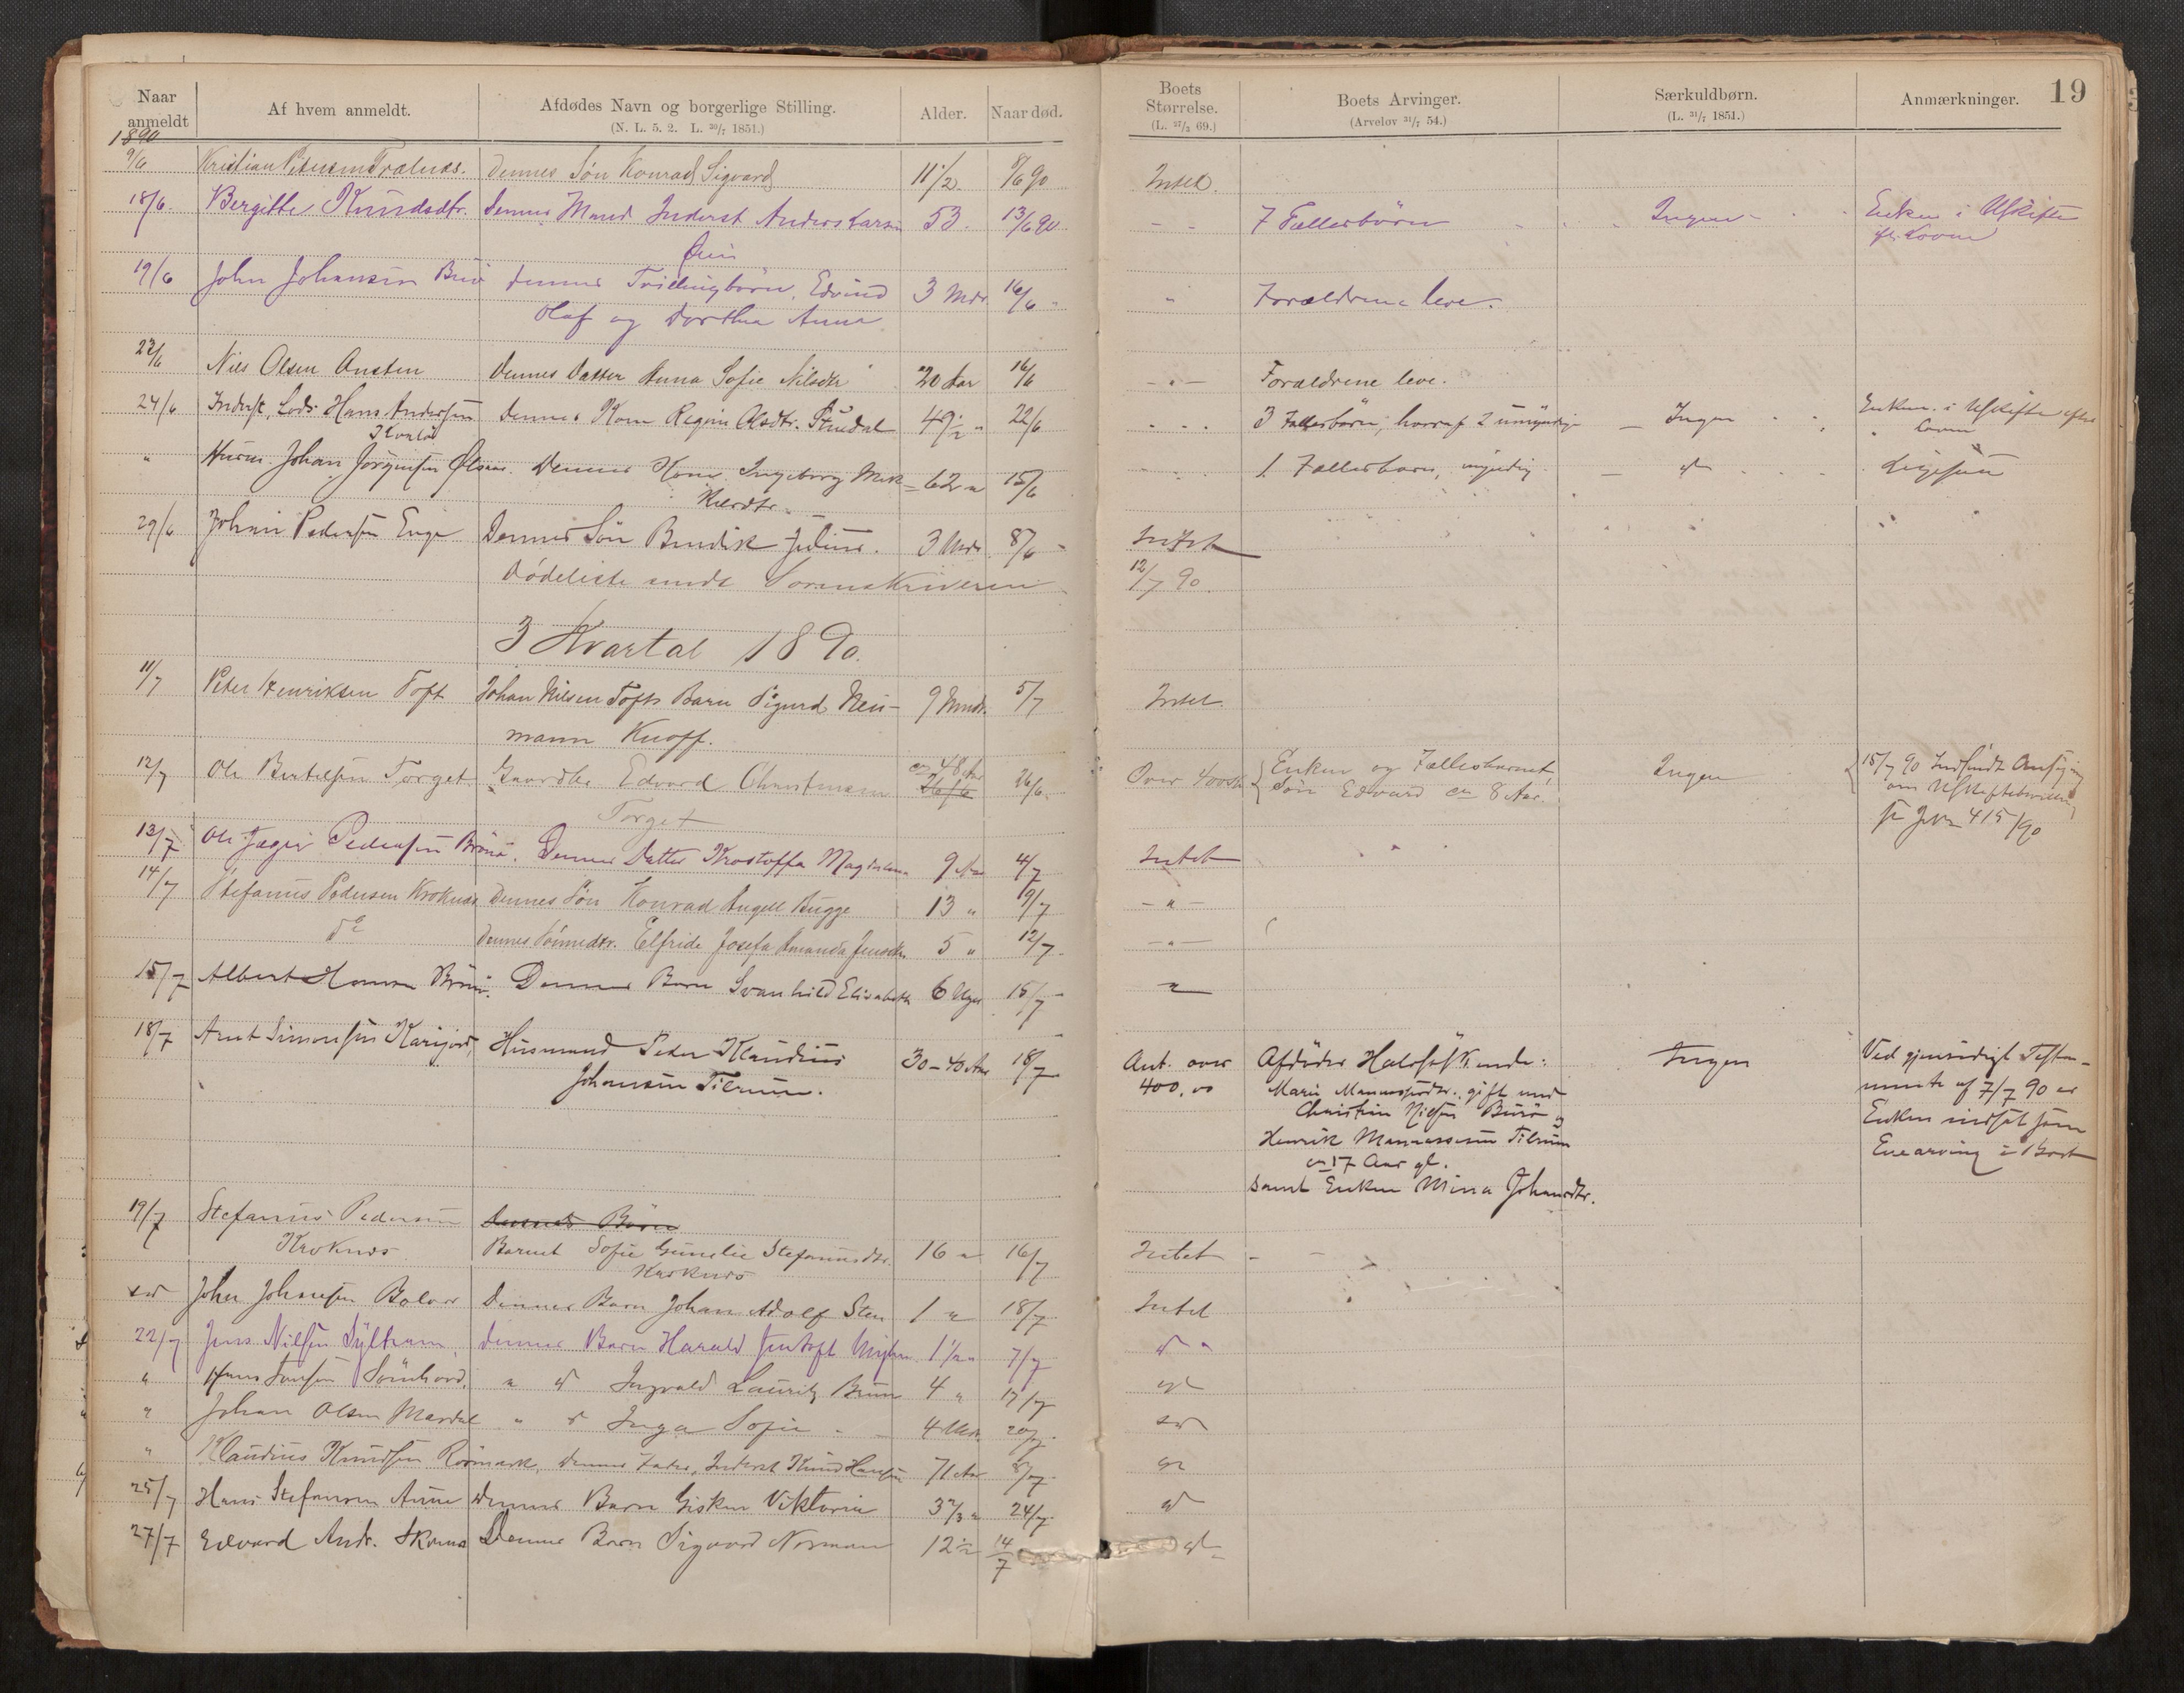 Naar anmeldt
Af hvem anmeldt.
Afdødes Navn og borgerlige Stilling.
(N. L. 5. 2. L. 30/7 1851.)
Alder.
Naar død.
Boets Størrelse.
(L. 27/3 69.)
Boets Arvinger.
(Arvelov 31/7 54.)
Særkuldbørn.
(L. 31/7 1851.)
Anmærkninger.
19
1890
9/6 Kristian Petersen Trælnæs. Dennes Søn Konrad Sigvard 11 1/2. 8/6 90 Intet.
18/6. Bergitte Knudsdtr. Dennes Mand Inderst Anders Larsen 53. 13/6 90 - - 7 Fællesbørn Ingen - Enken i Uskifte
efter Loven
19/6 John Johansen dennes Tvillingbørn, Edvind 3 Mdr 16/6 " " Forældrene leve.
Olaf og Dorthea Anna
Nils Olsen Dennes Datter Anna Sofie Nilsdtr 20 Aar 16/6 - " - Forældrene leve.
24/6 Inderst, Lods Hans Andersen Dennes Kone Regine Olsdtr. 49 1/2 " 22/6 3 Fællesbørn, hvoraf 2 umyndige Ingen Enken i Uskifte efter
Kvalø Loven
" Husm. Johan Jørgensen Dennes Kone Ingeborg Mek- 62 " 15/6 1 Fællesbarn, myndig Ligesaa
29/6 Johan Pedersen Enge Dennes Søn Bendik Julius. 3 Mdr 8/6 " Intet
Dødeliste sendt Sorenskriveren 12/7 90.
3 Kvartal 1890.
11/7 Peter Henriksen Toft Johan Nilsen Tofts Barn Sigurd Neu- 9 Mndr. 5/7 Intet.
mann Knoff.
12/7 Ole Bertelsen Torget Gaardbr Edvard Christensen ca 48 Aar 26/6. Over 400 Kr Enken og Fællesbarnet, Ingen 15/7 90 Indsendt Ansøgning
Søn Edvard ca 8 Aar. om Uskiftebevilling
Torget Jvn 415/90
13/7 Ole Jæger Pedersen Brønø. Dennes Datter Kristoffa Magdalena 9 Aar 4/7 Intet
14/7 Stefanus Pedersen Kroknæs Dennes Søn Konrad Angell Bugge 13 " 9/7 - " -
do Dennes Sønnedtr. Elfride Josefa Amanda Jensdtr. 5 " 12/7. - " -
15/7 Albert Hansen Brønø. Dennes Barn Svanhild Elisabeth 6 Uger 15/7 "
18/7 Arnt Simonsen Husmand Peder Klaudius 30-40 Aar 18/7 Ant. over Afdødes Halvsøskende: Ingen Ved gjensidigt Testa-
Johansen Tilrem. 400,00 Marie Manassesdtr., gift med mente af 7/7 90 er
Christian Nielsen og Enken indsat som
Henrik Manassesen Tilrem Enearving i Boet
ca 17 Aar gl.
samt Enken Mina Johansdtr.
19/7 Stefanus Pedersen Dennes Børn
Kroknæs Barnet Sofie Gunelie Stefanusdtr. 16 " 16/7 Intet -
Kroknæs
do Johan Johnsen Dennes Barn Johan Adolf Sten 1 " 18/7 Intet
22/7 Jens Nilsen Sylthavn Dennes Barn Harald 1 1/2 " 7/7 do "
" Hans " do Ingvald Lauritz Brun 4 " 17/7 do
" Johan Olsen Mardal " do Inga Sofie 4 Mdr. 20/7. do
" Klaudius Knudsen Rørmark, dennes Fader, Inderst Knud Hansen 71 Aar do
25/7 Hans Stefansen Dennes Barn Gisken Viktoria 3 2/3 " 24/7. do
27/7 Edvard Andr. Dennes Barn Sigvard Norman 12 1/2 14/7 do